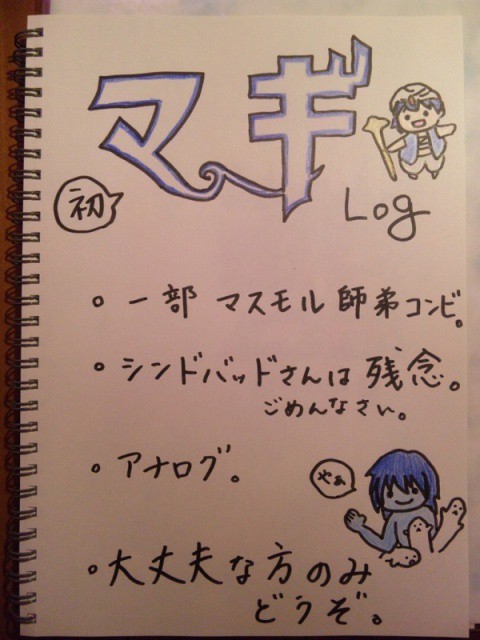 マギ
初
Log
。一部 マスモル師弟コンビ。
。シンドバッドさんは残念。
ごめんなさい。
。アナログ。
やぁ
。大丈夫な方のみ
どうぞ。